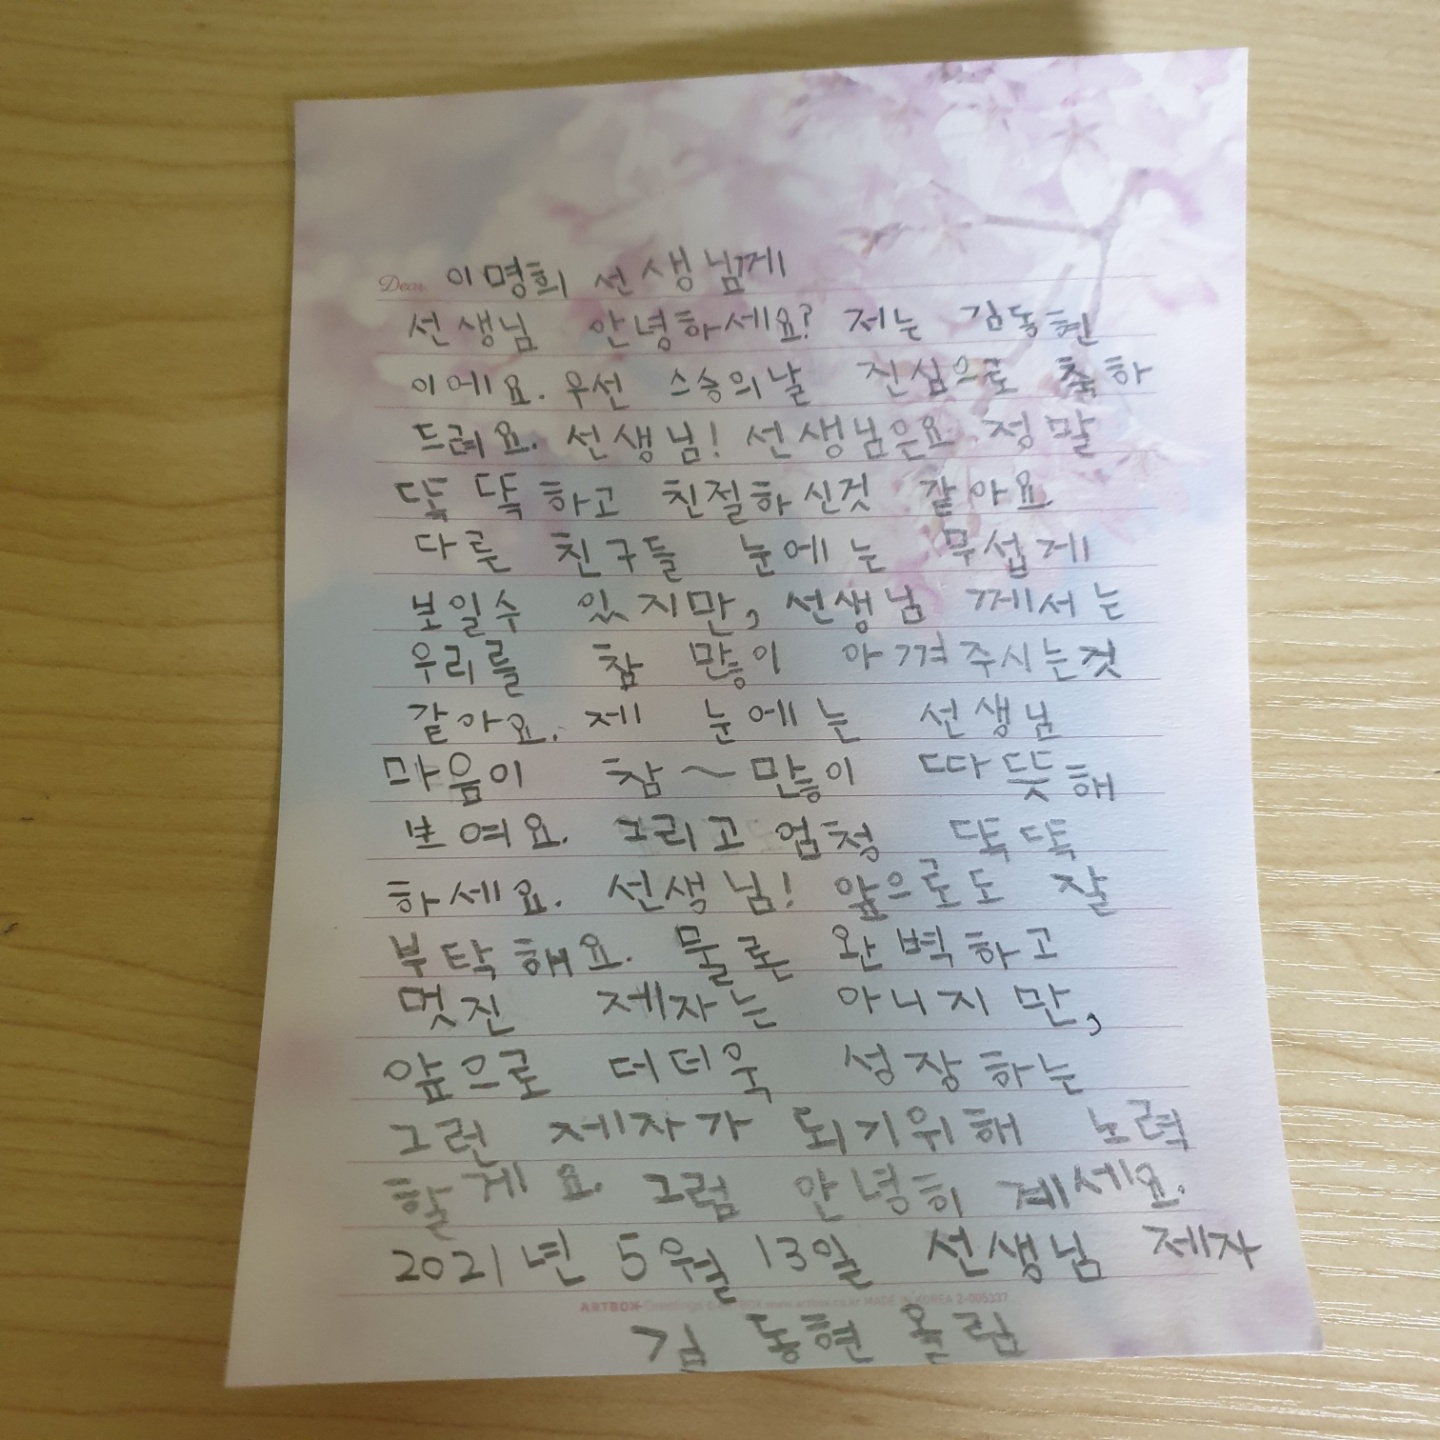 Dear. 이명희 선생님께
선생님 안녕하세요? 저는 김동현
이에요. 우선 스승의날 진심으로 축하
드려요. 선생님! 선생님은요 정말
똑똑하고 친절하신것 같아요.
다른 친구들 눈에는 무섭게
보일수 있지만, 선생님 께서는
우리를 참 많이 아껴주시는것
같아요. 제 눈에는 선생님
마음이 참~많이 따뜻해
보여요. 그리고 엄청 똑똑
하세요. 선생님! 앞으로도 잘
부탁해요. 물론 완벽하고
멋진 제자는 아니지만,
앞으로 더더욱 성장하는
그런 제자가 되기위해 노력
할게요. 그럼 안녕히 계세요.
2021년 5월 13일 선생님 제자
ARTBOX Greetings www.artbox.co.kr MADE IN KOREA
김동현 올림